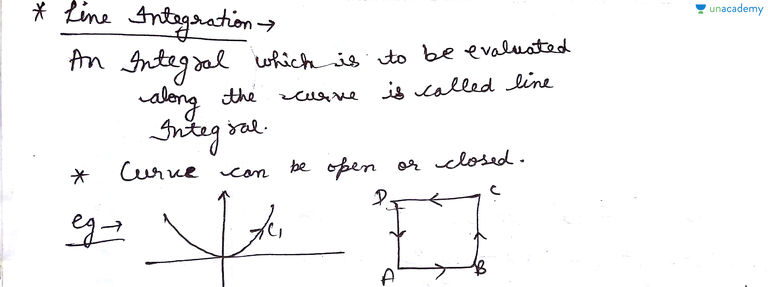 unacademy
* Line Integration →
An Integral which is to be evaluated
along the curve is called line
Integral.
* Curve can be open or closed.
eg →
C₁
D C
A B